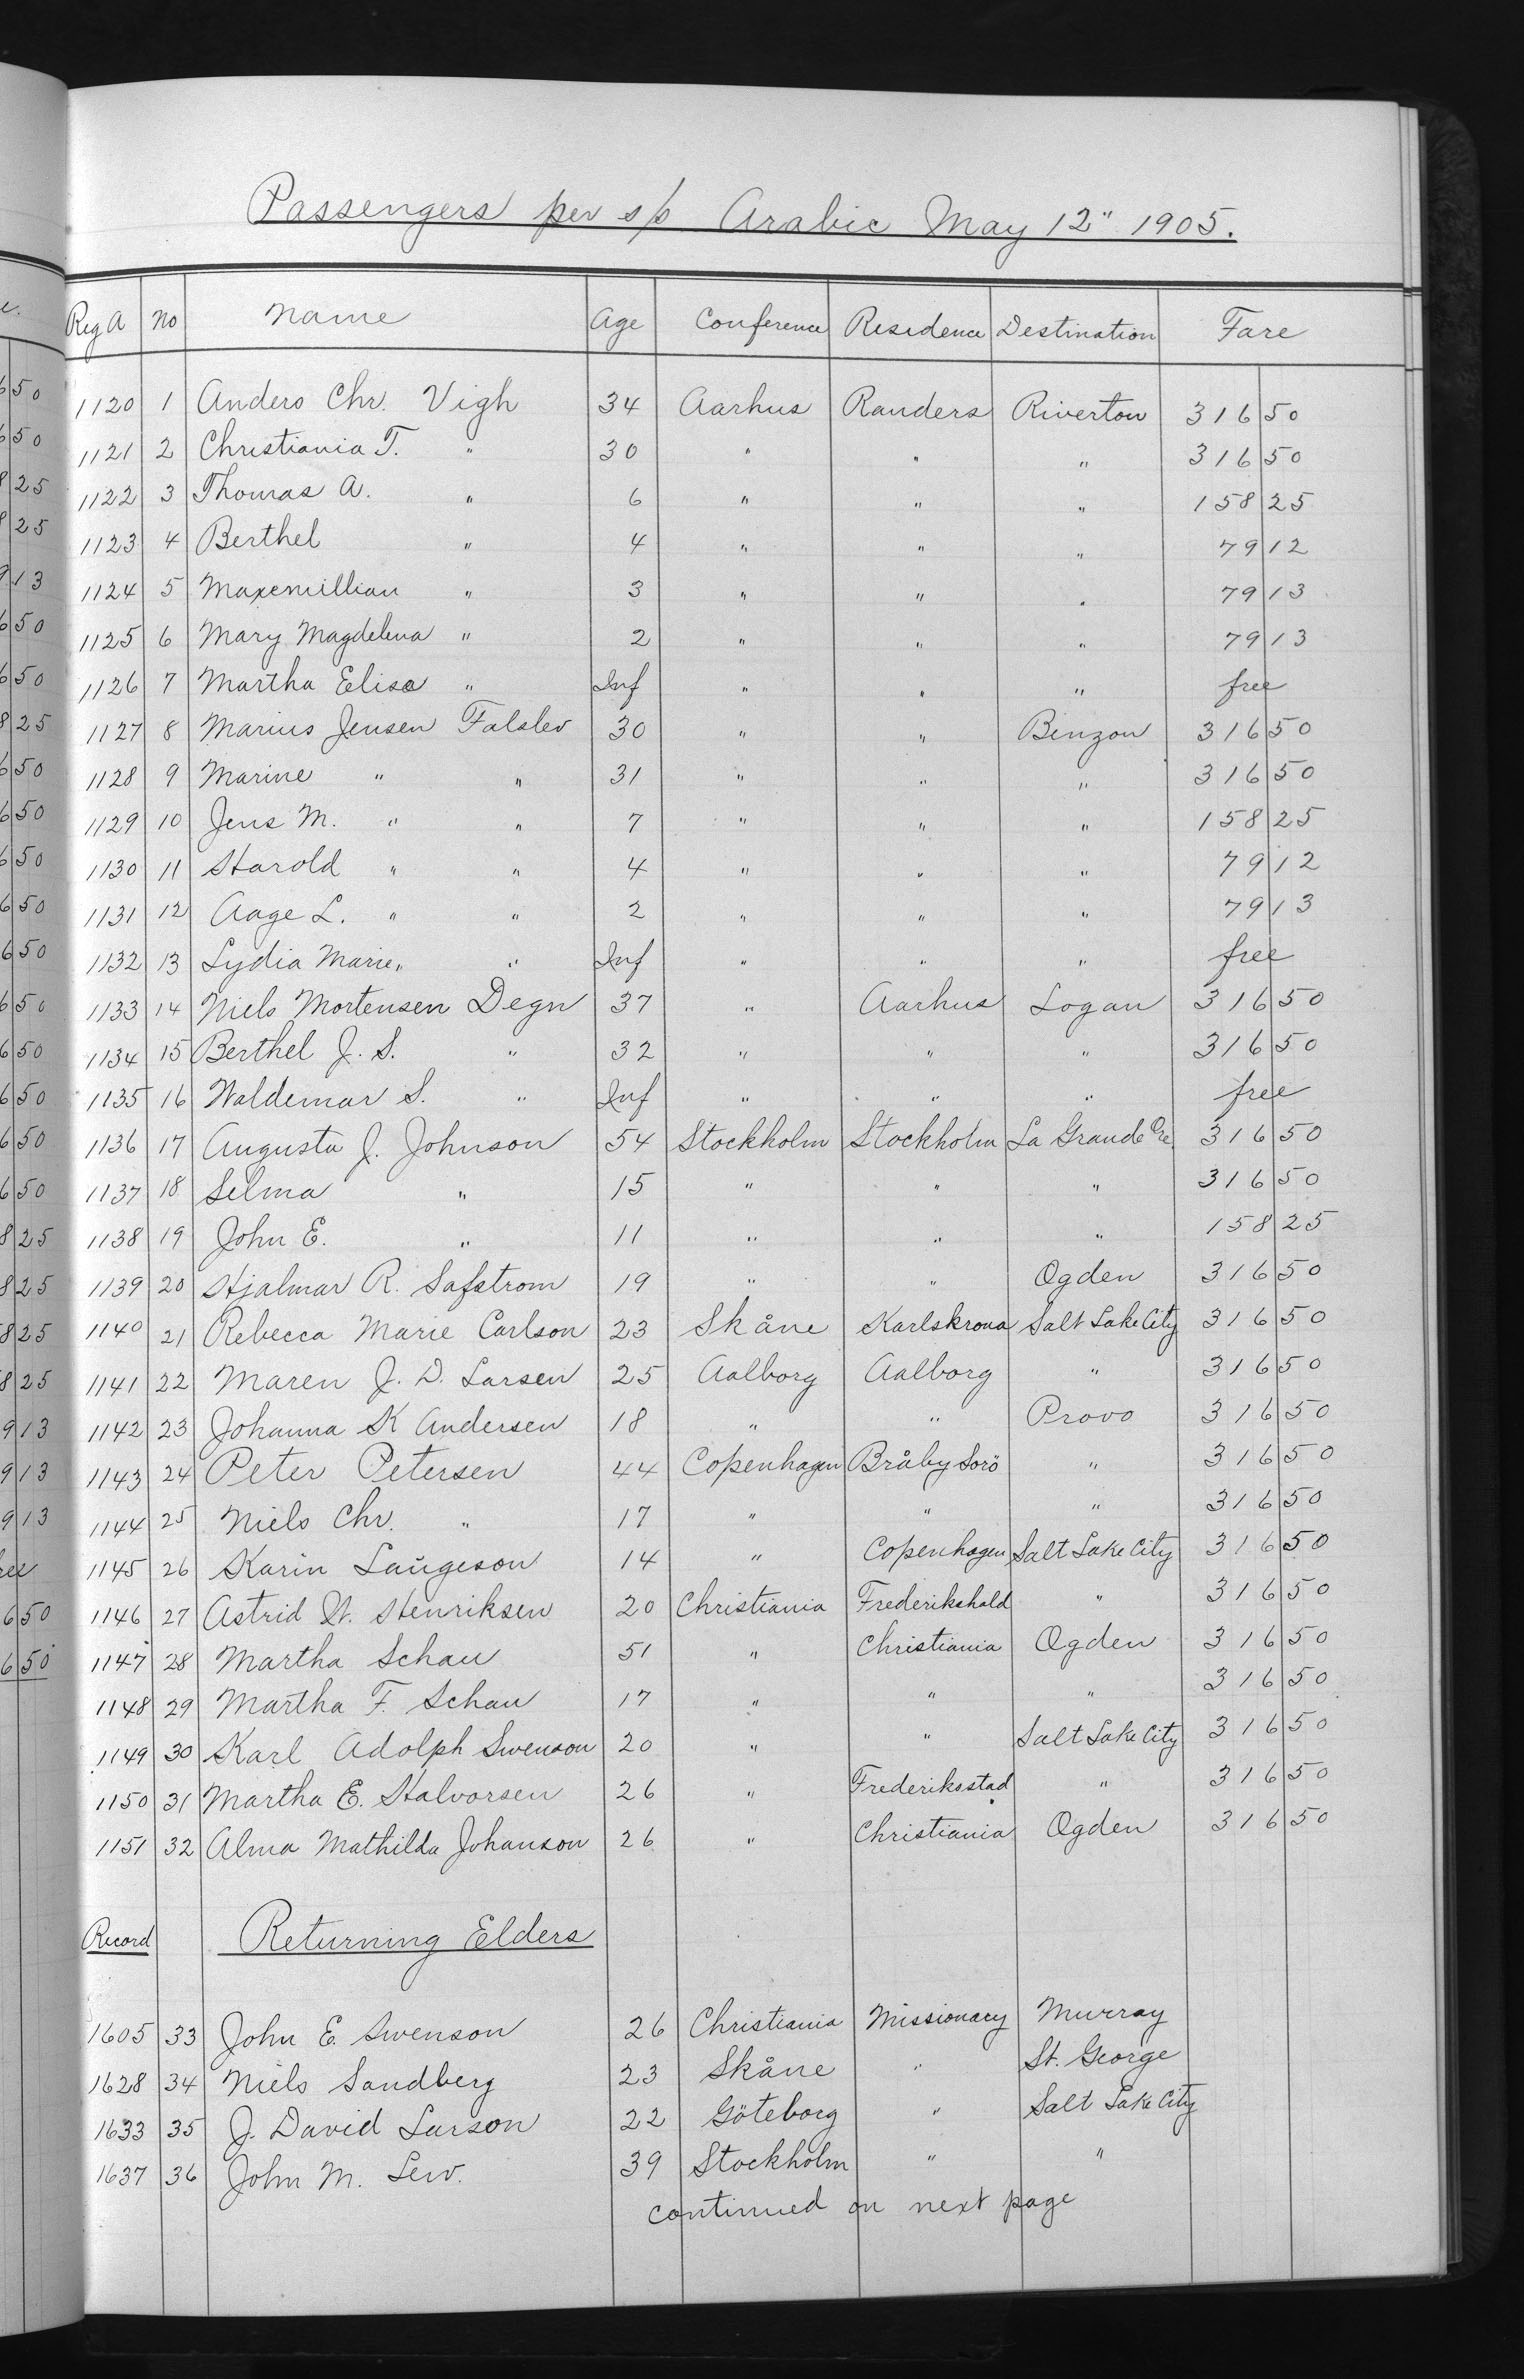 Passengers per s/s Arabic May 12" 1905.
Reg A No Name Age Conference Residence Destination Fare
1120 1 Anders Chr. Vigh 34 Aarhus Randers Riverton 316 50
1121 2 Christiania T. " 30 " " " 316 50
1122 3 Thomas A. " 6 " " " 158 25
1123 4 Berthel " 4 " " " 79 12
1124 5 Maxemillian " 3 " " " 79 13
1125 6 Mary Magdelena " 2 " " " 79 13
1126 7 Martha Elise " Inf " " " free
1127 8 Marius Jensen Falslev 30 " " Binzon 316 50
1128 9 Marine " " 31 " " " 316 50
1129 10 Jens M. " " 7 " " " 158 25
1130 11 Harold " " 4 " " " 79 12
1131 12 Aage L. " " 2 " " " 79 13
1132 13 Lydia Marie " " Inf " " " free
1133 14 Niels Mortensen Degn 37 " Aarhus Logan 316 50
1134 15 Berthel J. S. " 32 " " " 316 50
1135 16 Waldemar S. " Inf " " " free
1136 17 Augusta J. Johnson 54 Stockholm Stockholm La Grande Ore 316 50
1137 18 Selma " 15 " " " 316 50
1138 19 John E. " 11 " " " 158 25
1139 20 Hjalmar R. Safstrom 19 " " Ogden 316 50
1140 21 Rebecca Marie Carlson 23 Skåne Karlskrona Salt Lake City 316 50
1141 22 Maren J. D. Larsen 25 Aalborg Aalborg " 316 50
1142 23 Johanna K Andersen 18 " " Provo 316 50
1143 24 Peter Petersen 44 Copenhagen Bråby Sorö " 316 50
1144 25 Niels Chr. " 17 " " " 316 50
1145 26 Karin Laŭgeson 14 " Copenhagen Salt Lake City 316 50
1146 27 Astrid H. Henriksen 20 Christiania Frederikshald " 316 50
1147 28 Martha Schau 51 " Christiania Ogden 316 50
1148 29 Martha F. Schau 17 " " " 316 50
1149 30 Karl Adolph Swenson 20 " " Salt Lake City 316 50
1150 31 Martha E. Halvorsen 26 " Frederiksstad " 316 50
1151 32 Alma Mathilda Johanson 26 " Christiania Ogden 316 50
Record Returning Elders
1605 33 John E. Swenson 26 Christiania Missionary Murray
1628 34 Niels Sandberg 23 Skåne " St. George
1633 35 J. David Larson 22 Göteborg " Salt Lake City
1637 36 John M. Lew. 39 Stockholm " "
continued on next page